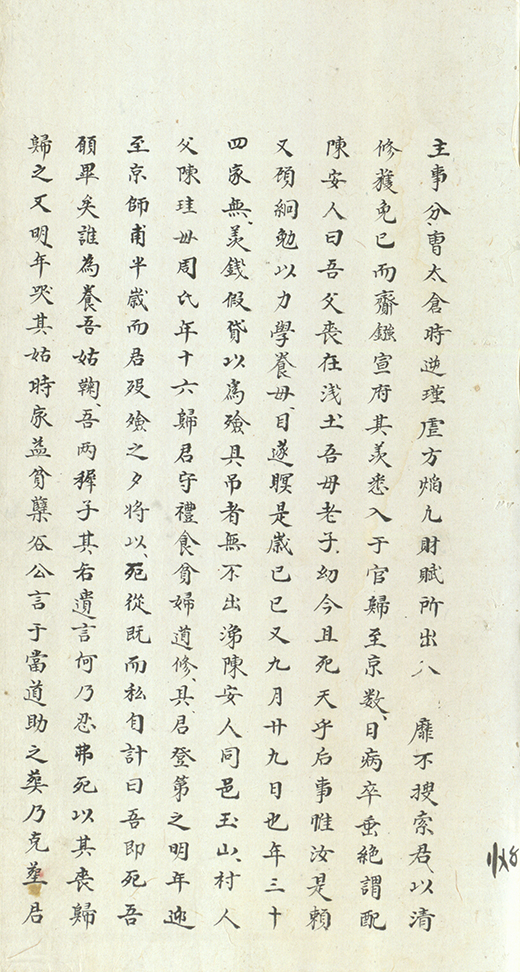 主事分曹太倉時逆瑾虐方焰凡財賦所出入 靡不搜索君以清
修獲免已而齎鏹宣府其羡悉入于官歸至京数日病卒垂絶謂配
陳安人曰吾父喪在浅土吾母老子幼今且死天乎后事惟汝是頼
又頋絅勉以力學養母目遂瞑是歳己巳又九月廿九日也年三十
四家無羡錢假貸以爲殮具吊者無不出涕陳安人同邑玉山村人
父陳珪母周氏年十六歸君守禮食貧婦道修具君登第之明年迎
至京師甫半歳而君歿殮之夕将以死從既而私自計曰吾即死吾
願畢矣誰為養吾姑鞠吾两穉子其若遺言何乃忍弗死以其喪歸
歸之又明年哭其姑時家益貧蘖谷公言于當道助之葬乃克塟君